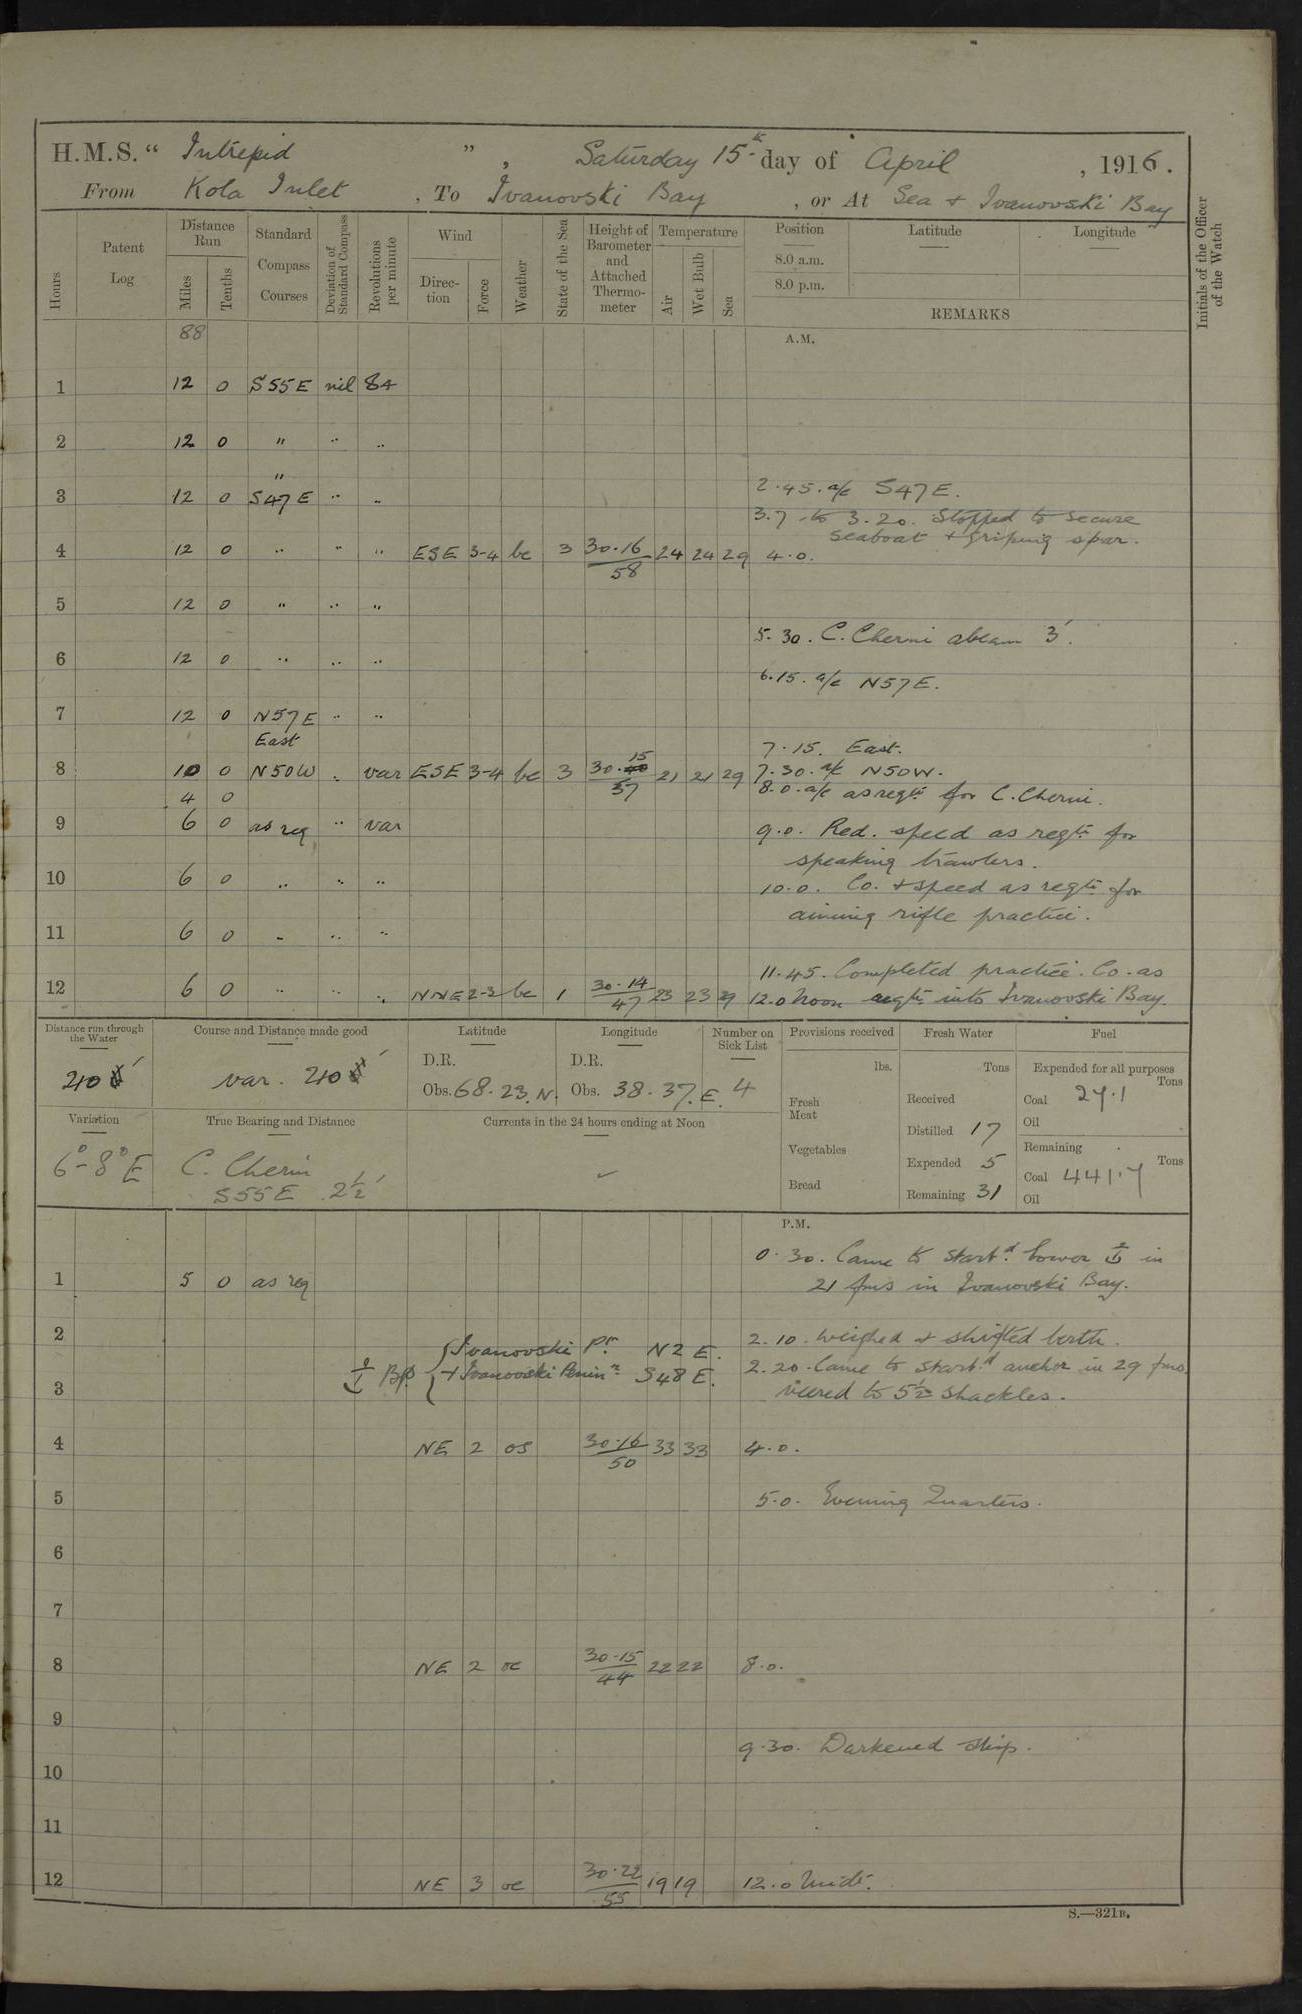 H.M.S. “ Intrepid ” , Saturday 15th day of April , 1916.
From Kola Inlet , To Ivanovski Bay , or At Sea + Ivanovski Bay
Hours Patent Log Distance Run Miles Tenths Standard Compass Courses Deviation of Standard Compass Revolutions per minute Wind Direction Force Weather State of the Sea Height of Barometer and Attached Thermometer Temperature Air Wet Bulb Sea Position 8.0 a.m. 8.0 p.m. Latitude Longitude REMARKS Initials of the Officer of the Watch
88 A.M.
1 12 0 S55E nil 84
2 12 0 " " "
"
3 12 0 S47E " " 2.45. a/c S47E.
3.7 to 3.20. Stopped to secure
seaboat + griping spar.
4 12 0 " " " ESE 3-4 bc 3 30.16/58 24 24 29 4.0.
5 12 0 " " "
5.30. C. Cherni abeam 3'.
6 12 0 " " "
6.15. a/c N57E.
7 12 0 N57E " "
East 7.15. East.
8 10 0 N50W " var ESE 3-4 bc 3 30.15/57 21 21 29 7.30. a/c N50W.
4 0 8.0. a/c as reqte for C. Cherni.
9 6 0 as req " var 9.0. Red. speed as reqte for
speaking trawlers.
10 6 0 " " " 10.0. Co. + speed as reqte for
aiming rifle practice.
11 6 0 " " "
11.45. Completed practice. Co. as
12 6 0 " " " NNE 2-3 bc 1 30.14/47 23 23 29 12.0 Noon reqte into Ivanovski Bay.
Distance run through the Water Course and Distance made good Latitude Longitude Number on Sick List Provisions received Fresh Water Fuel
D.R. D.R. lbs. Tons Expended for all purposes Tons
210 ' var. 210 ' Obs. 68.23.N. Obs. 38.37.E. 4 Fresh Meat Received Coal 27.1
Oil
Variation True Bearing and Distance Currents in the 24 hours ending at Noon Distilled 17
Vegetables Remaining Tons
6°-8°E C. Cherni Expended 5 Coal 441.7
S55E 2½' Bread Remaining 31 Oil
P.M.
0.30. Came to starbd bower ⚓ in
1 5 0 as req 21 fms in Ivanovski Bay.
2 2.10. Weighed + shifted berth.
⚓ Bgs { Ivanovski Pt. N2E. 2.20. Came to starbd anchor in 29 fms
3 + Ivanovski Penin S48E. veered to 5½ shackles.
4 NE 2 os 30.16/50 33 33 4.0.
5 5.0. Evening Quarters.
6
7
8 NE 2 oc 30.15/44 22 22 8.0.
9
9.30. Darkened ship.
10
11
12 NE 3 oc 30.22/55 19 19 12.0 Midt.
S.—321B.